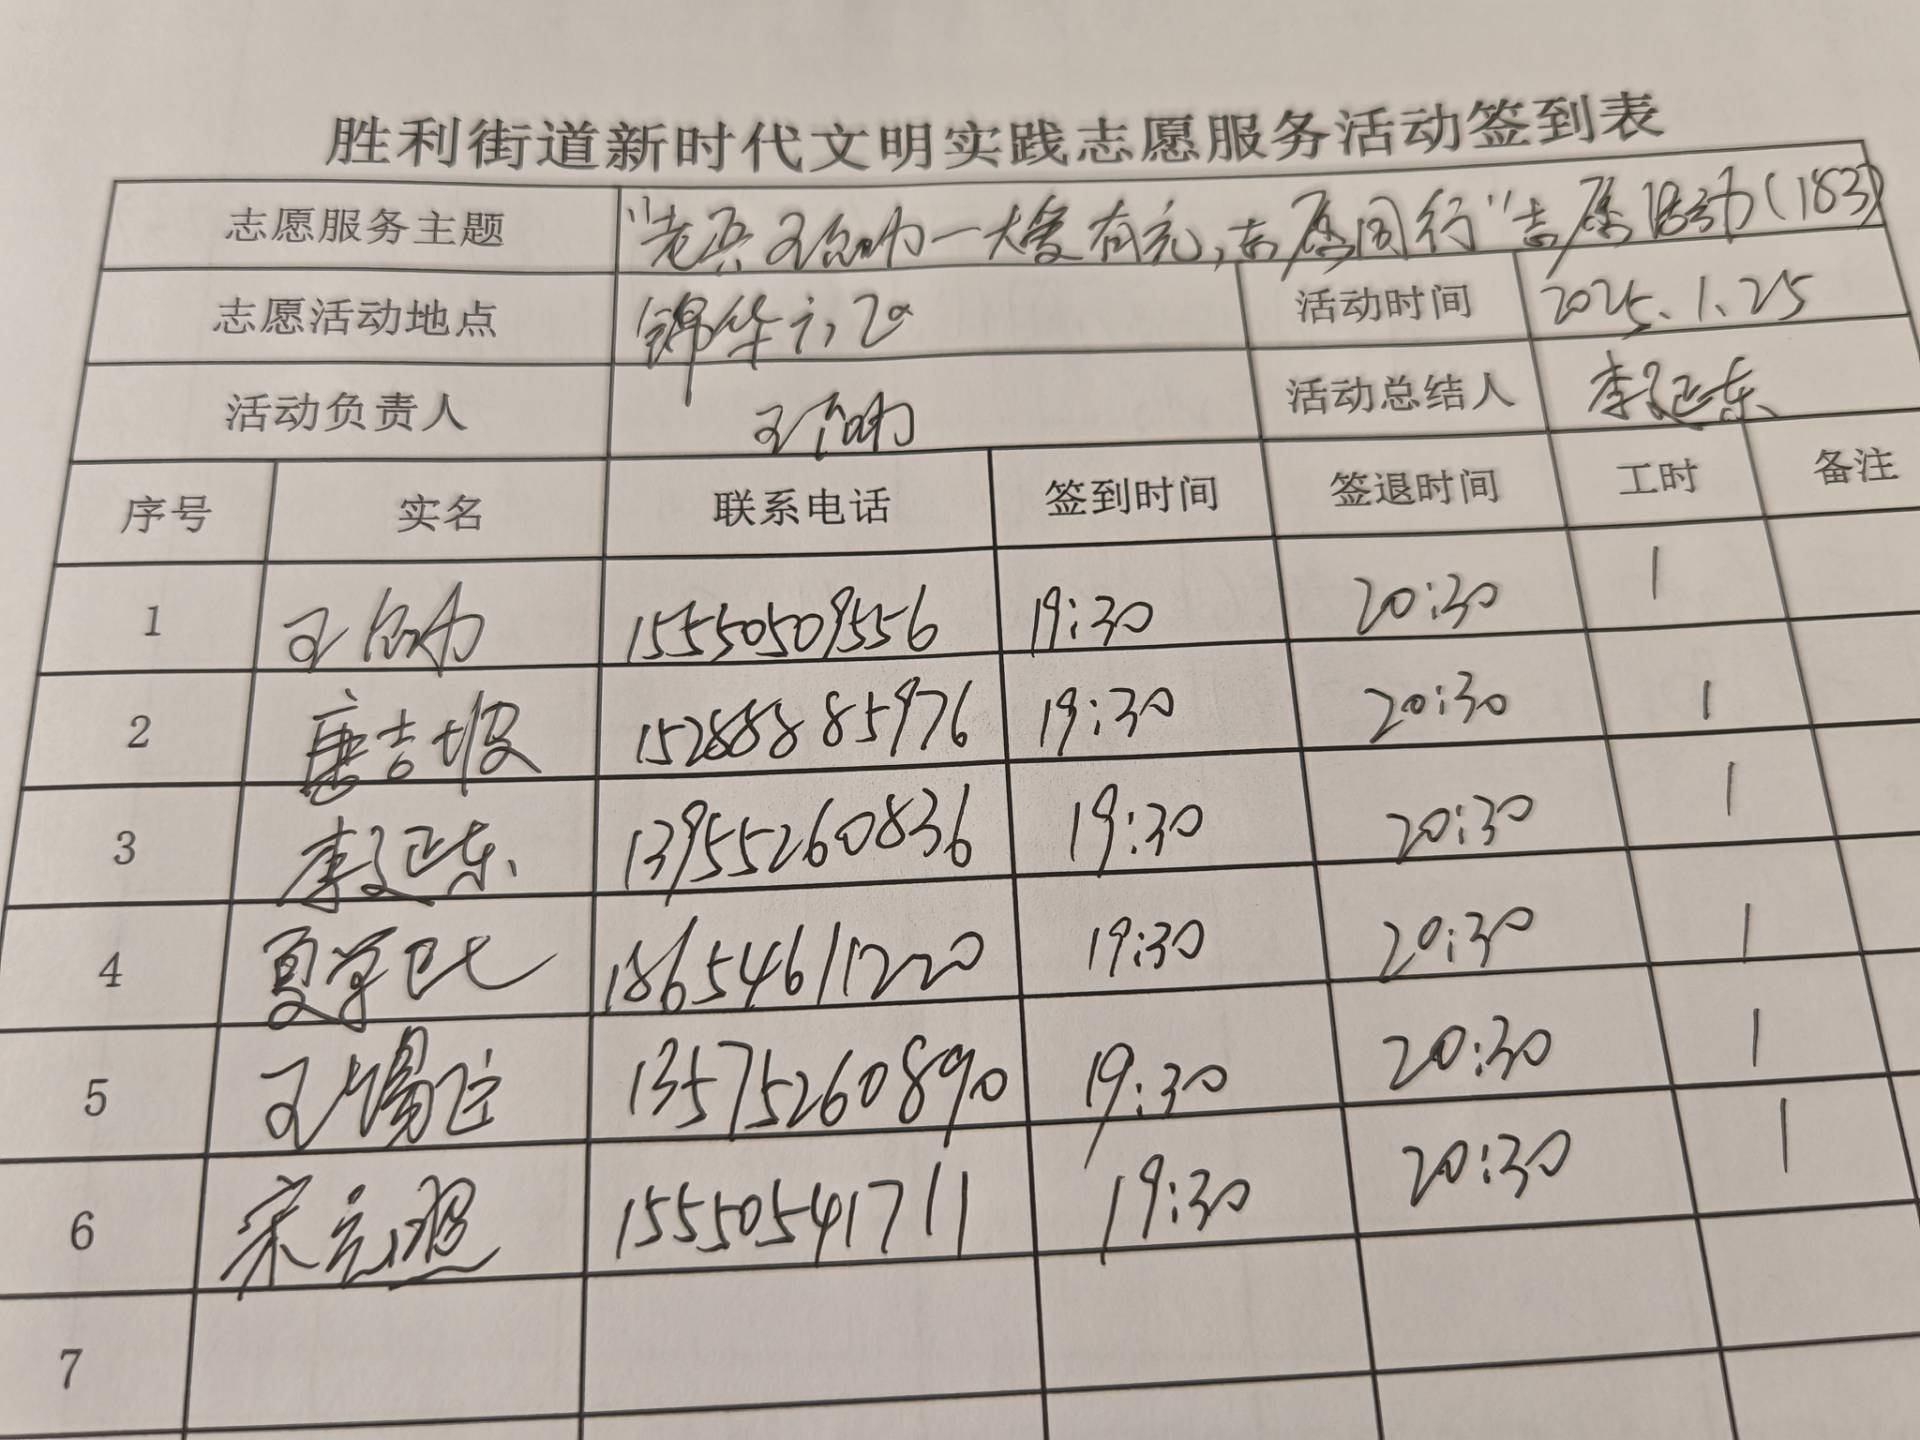 胜利街道新时代文明实践志愿服务活动签到表
志愿服务主题 "老兵王 一大爱有光,志愿同行"志愿活动(183)
志愿活动地点 锦华 活动时间 2025.1.25
活动负责人 王 活动总结人 李延东
序号 实名 联系电话 签到时间 签退时间 工时 备注
1 王 15550509556 19:30 20:30 1
2 唐吉坡 15288885976 19:30 20:30 1
3 李延东 13955260836 19:30 20:30 1
4 夏学 18654611220 19:30 20:30 1
5 王 13575260890 19:30 20:30 1
6 宋元照 15550541711 19:30 20:30 1
7